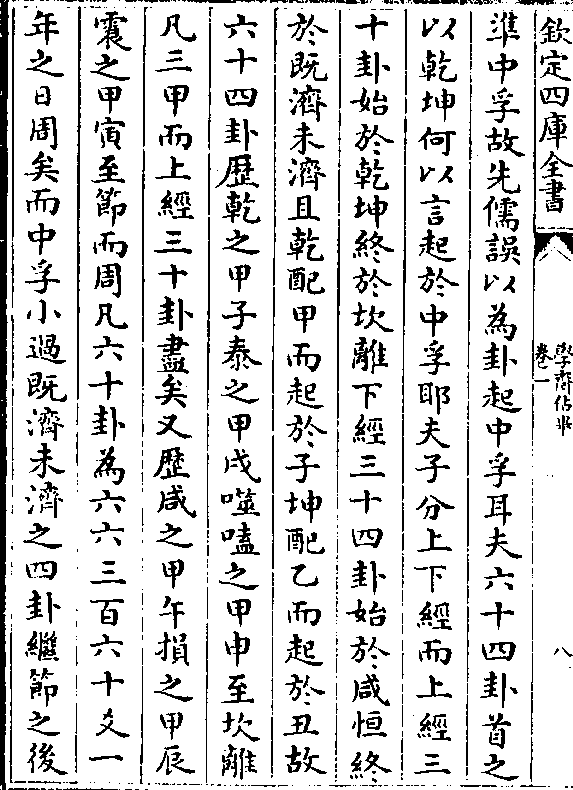 欽定四庫全書
學齋佔畢
卷一
八
準中孚故先儒誤以為卦起中孚耳夫六十四卦首之
以乾坤何以言起於中孚耶夫子分上下經而上經三
十卦始於乾坤終於坎離下經三十四卦始於咸恒終
於既濟未濟且乾配甲而起於子坤配乙而起於丑故
六十四卦歷乾之甲子泰之甲戌噬嗑之甲申至坎離
凡三甲而上經三十卦盡矣又歷咸之甲午損之甲辰
震之甲寅至節而周凡六十卦為六六三百六十爻一
年之日周矣而中孚小過既濟未濟之四卦繼節之後